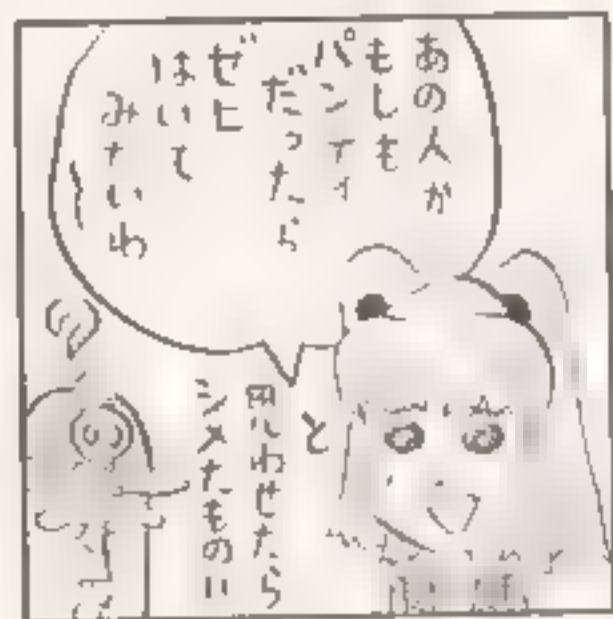 あの人が
もしも
パンティ
だったら
ゼヒ
はいて
みたいわ
と
思わせたら
シメたもの!!